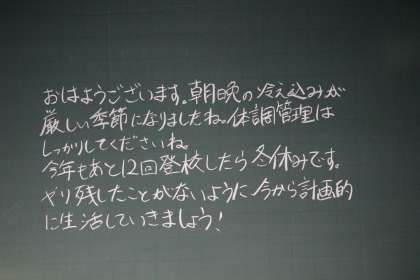 おはようございます。朝晩の冷え込みが
厳しい季節になりましたね。体調管理は
しっかりしてくださいね。
今年もあと12回登校したら冬休みです。
やり残したことがないように今から計画的
に生活していきましょう!